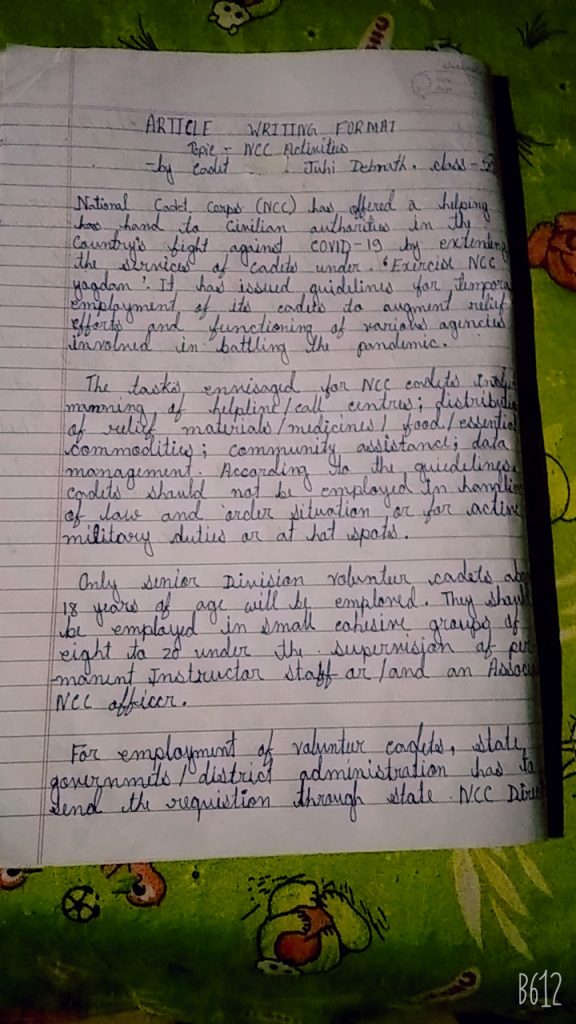 ARTICLE WRITING FORMAT
Topic - NCC Activities
-by cadet Juhi Debnath. class-
National Cadet Corps (NCC) has offered a helping
hand to Civilian authorities in the
Country's fight against COVID-19 by extending
the services of cadets under. 'Exercise NCC
yogdan'. It has issued guidelines for tempora
employment of its cadets to augment relief
efforts and functioning of various agencies
involved in battling the pandemic.
The tasks envisaged for NCC cadets
manning of helpline/call centres; distributi
of relief materials/medicines/food/essential
commodities; community assistance; data
management. According to the guidelines,
cadets should not be employed in handlin
of law and order situation or for active
military duties or at hot spots.
Only senior Division volunteer cadets abo
18 years of age will be employed. They shoul
be employed in small cohesive groups of
eight to 20 under the supervision of per
manent Instructor Staff or/and an Assoc
NCC officer.
For employment of volunteer cadets, state
governmets/district administration has to
send the requistion through state NCC Dire
B612